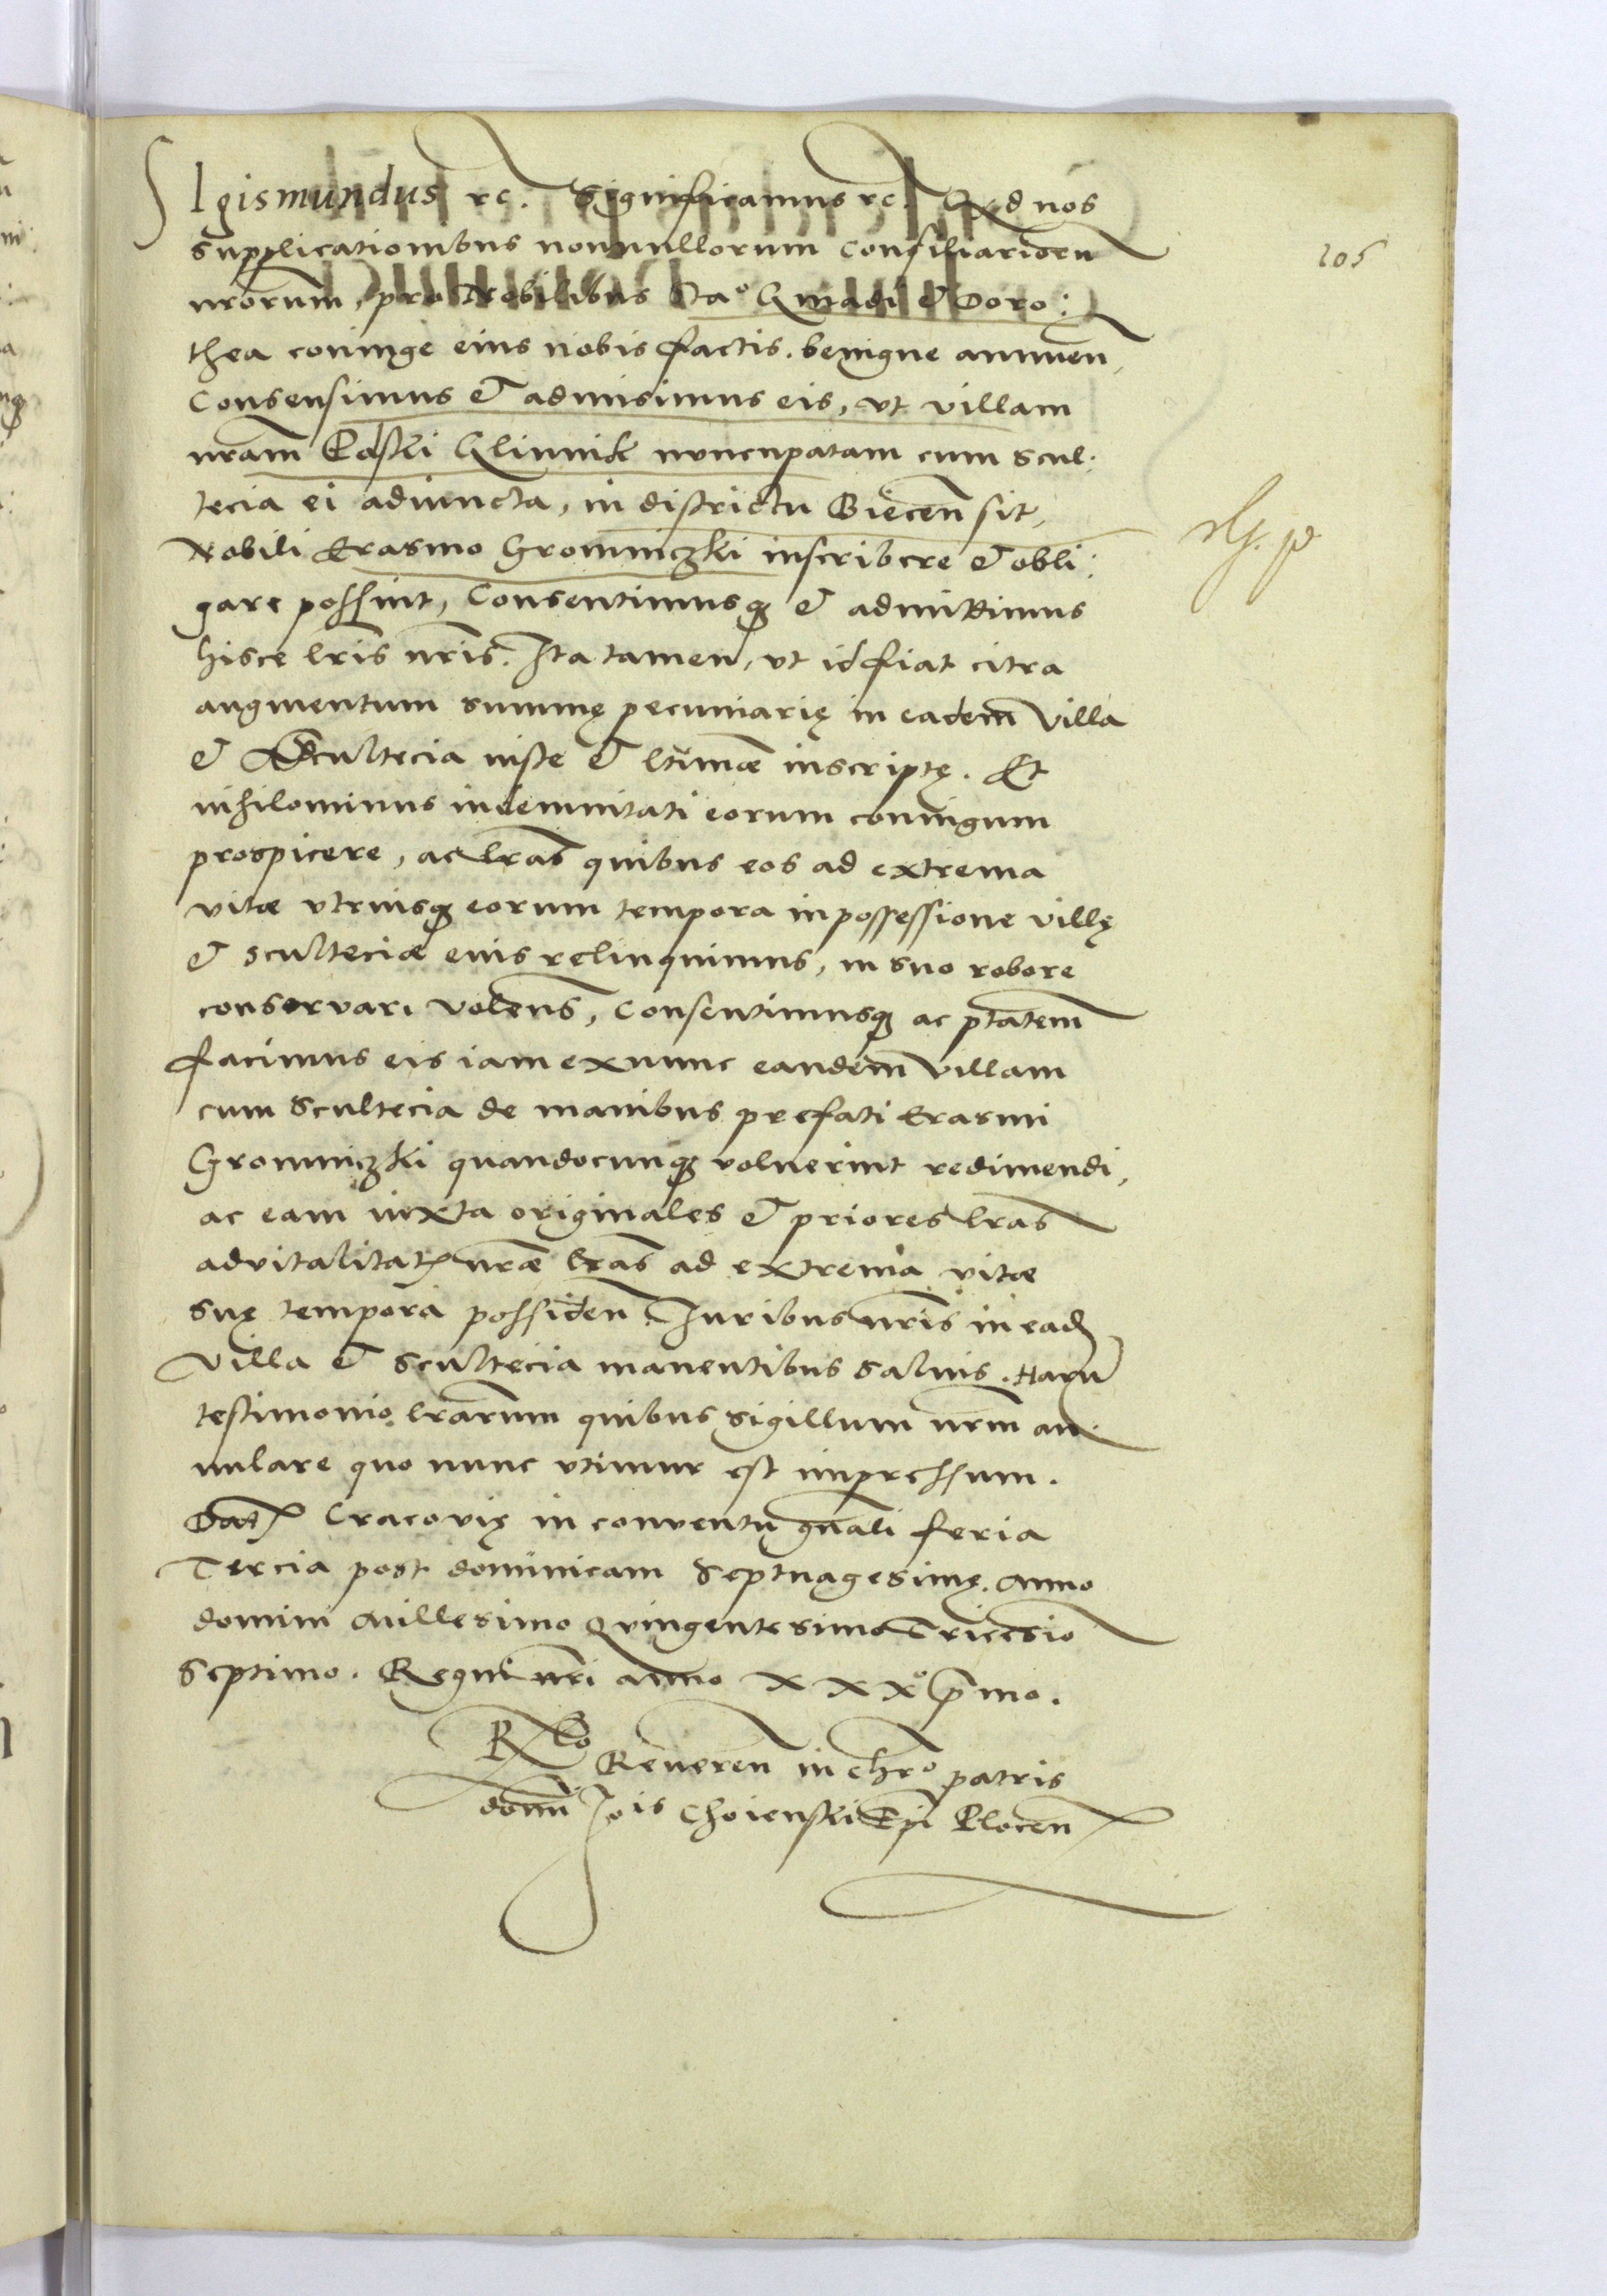 SIgismundus rc. Significamus rc. Qd nos
supplicationibus nonnullorum Consiliariorum
nrorum, pro Nobilibus Sta° Gmadi & Doro:
thea coniuge eius nobis factis. benigne annuen,
Consensimus & admisimus eis, vt villam
nram Paski Glinnik nuncupatam cum scul:
tecia ei adiuncta, in districtu Biecen sit,
Nobili Erasmo Gromniczki inscribere & obli:
gare possint, Consentimusq & admittimus
hisce lris nris. Ita tamen, vt id fiat citra
augmentum summę pecuniarię in eadem villa
& Scultecia iuste & ltimæ inscriptę. Et
nihilominus indemnitati eorum coniugum
prospicere, ac lras quibus eos ad extrema
vitæ vtriusq eorum tempora in possessione villę
& sculteciæ eius relinquimus, in suo robore
conservari volens, Consentimusq ac ptatem
facimus eis iam ex nunc eandem villam
cum Scultecia de manibus prefati Erasmi
Gromniczki quandocunq voluerint redimendi,
ac eam iuxta originales & priores lras
advitalitat nræ lras ad extrema vitæ
suę tempora possiden. Iuribus nris in ead
villa & scultecia manentibus salvis. Haru
testimonio lrarum quibus sigillum nrm an:
nulare quo nunc vtimur est impressum.
Dat Cracovię in conventu gnali feria
Tercia post dominicam Septuagesimę. Anno
domini Millesimo Quingentesimo Tricesio
Septimo. Regni nri anno XXX° pmo.
Rlo
Reveren in chro patris
domi Jois Choienski Epi Plocen
205